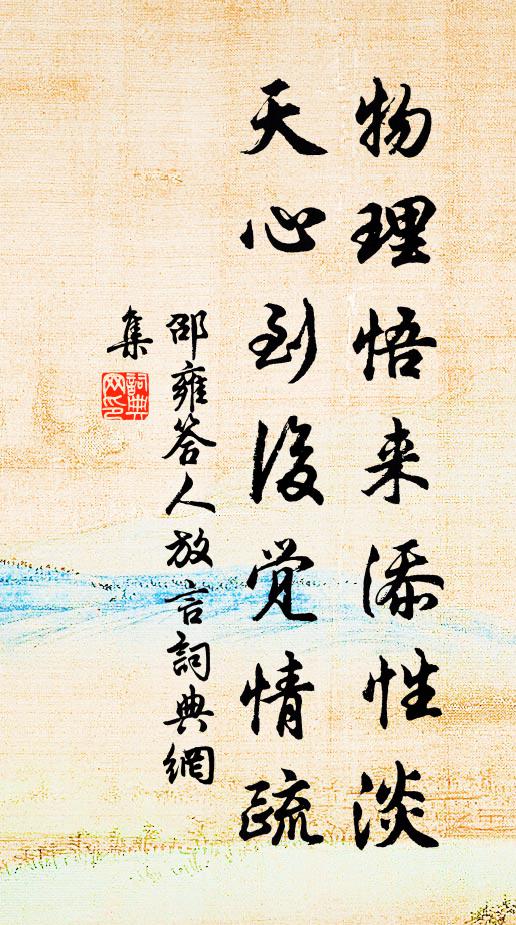 物理悟来添性淡
天心到後觉情疏
邵雍答人放言詞典網
集
詞典
网印